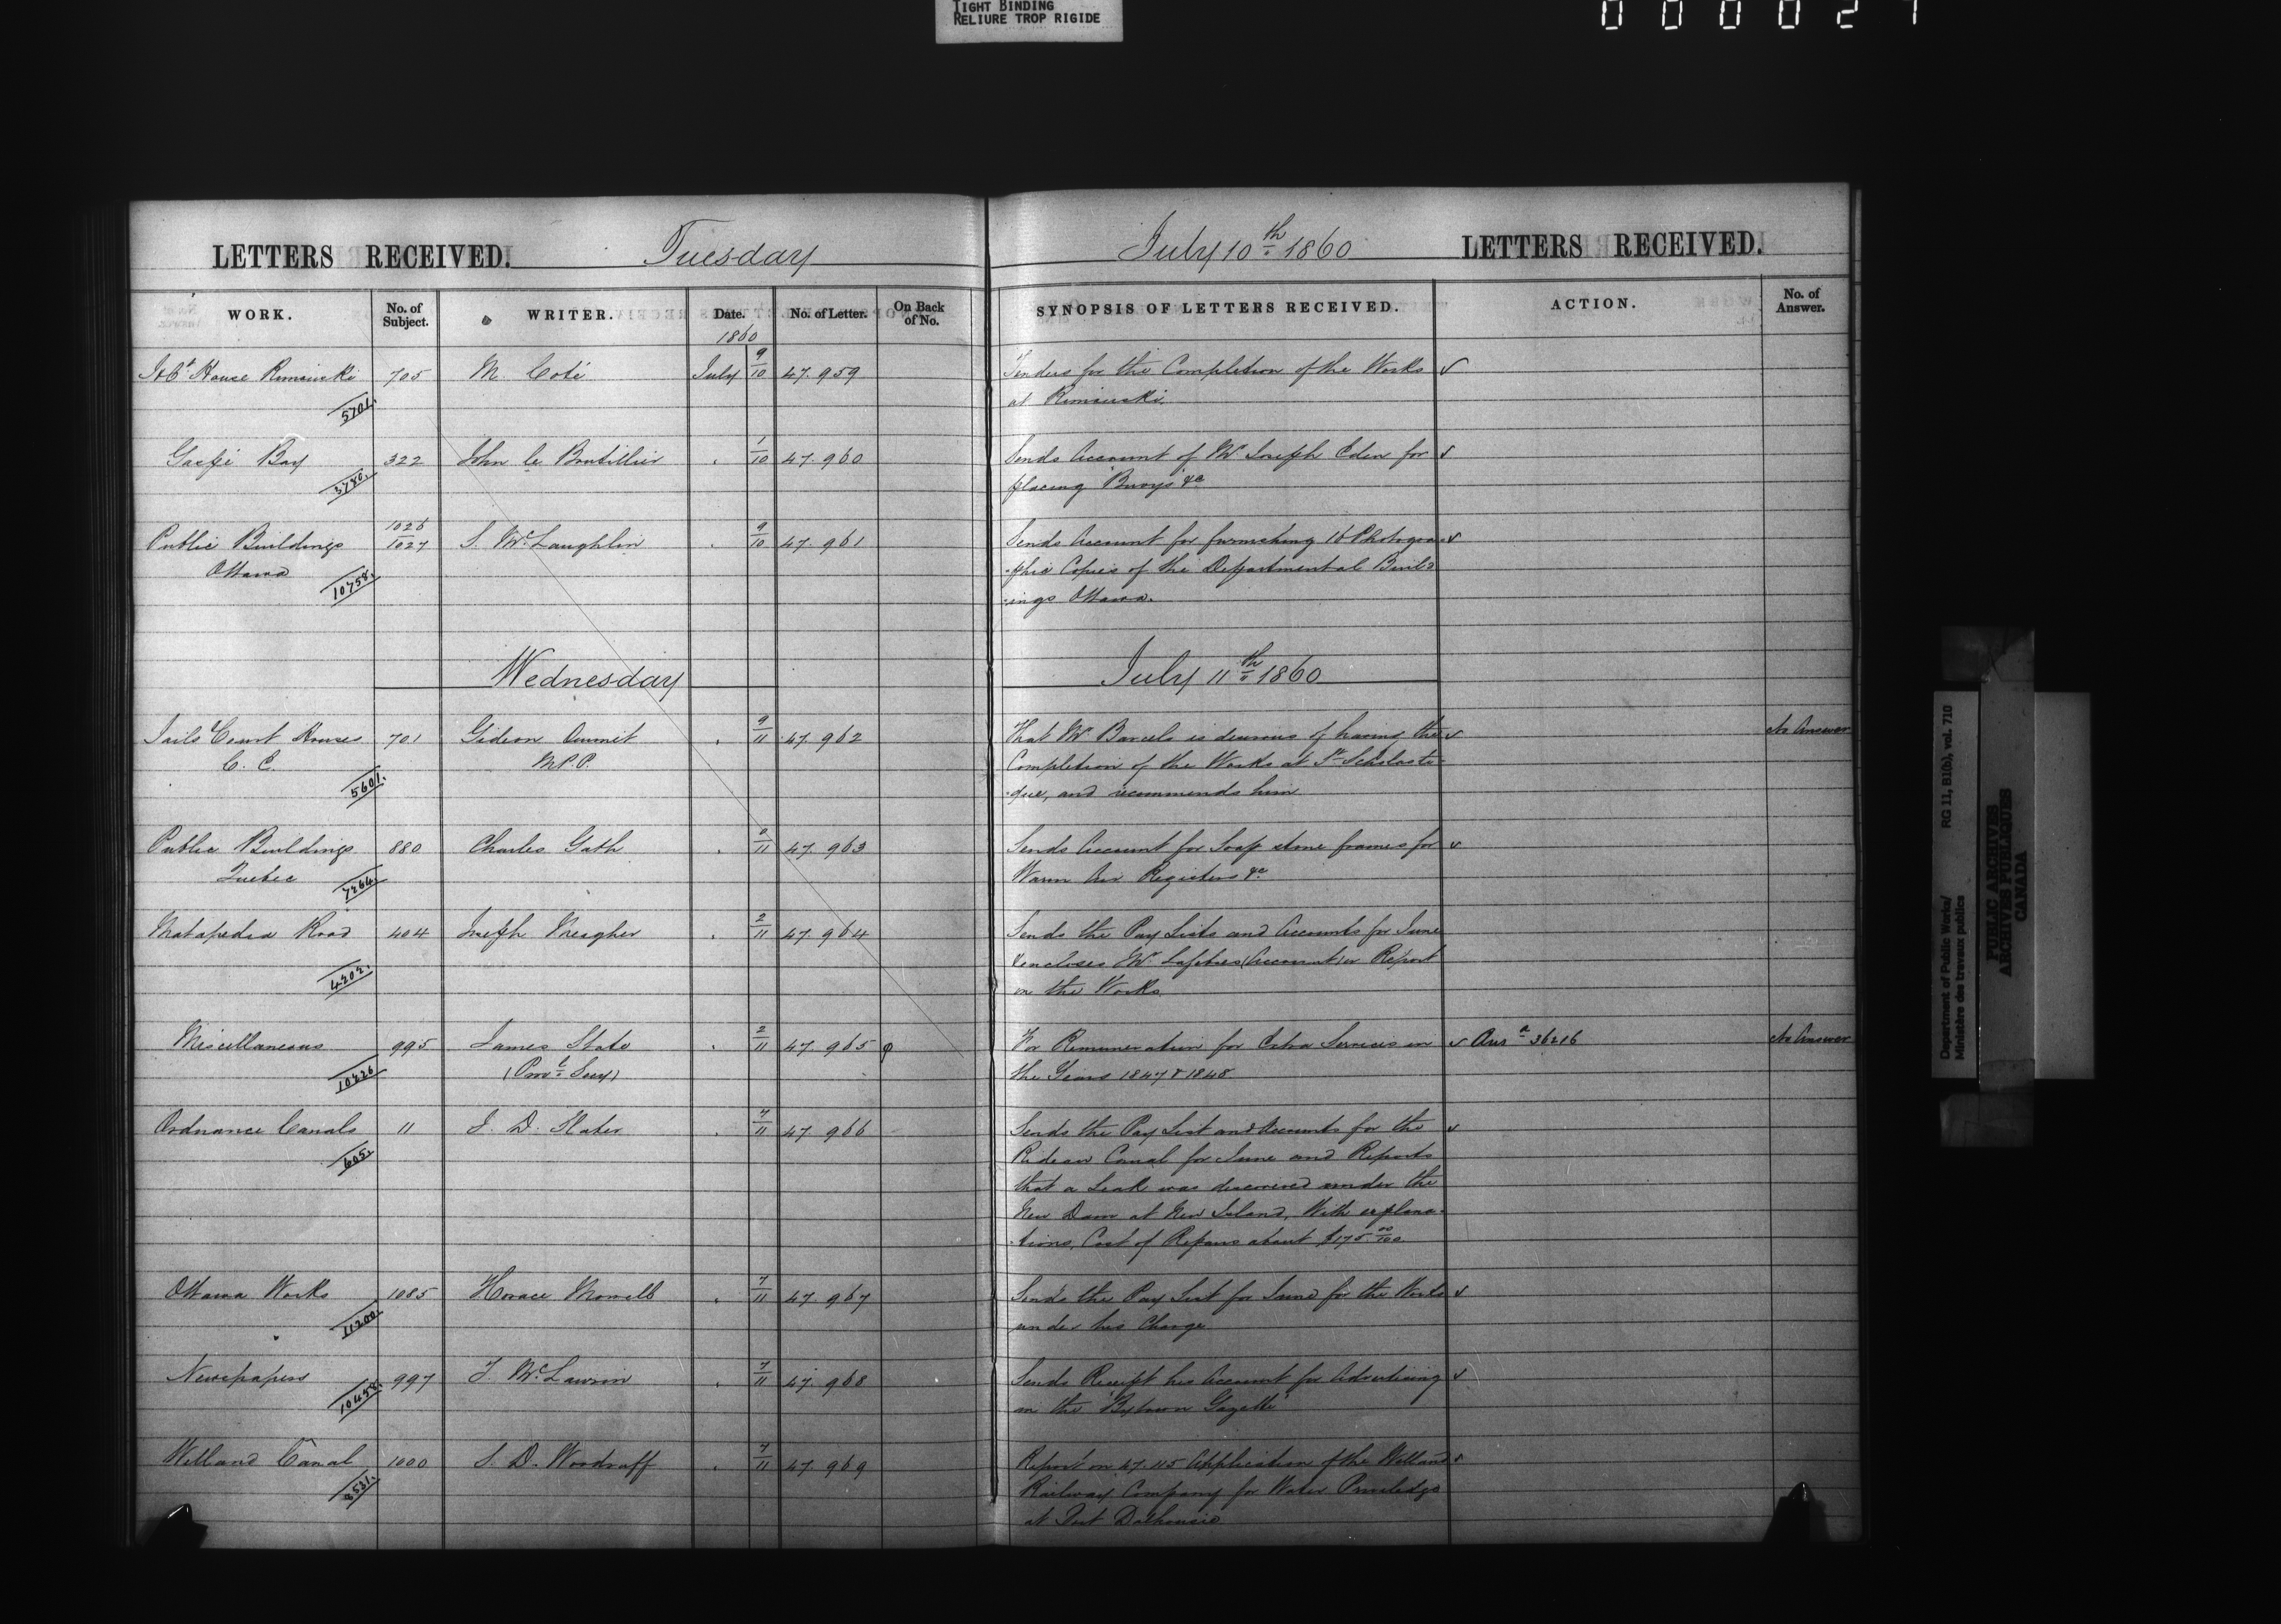 TIGHT BINDING
RELIURE TROP RIGIDE
LETTERS RECEIVED. Tuesday July 10th 1860 LETTERS RECEIVED.
WORK. No. of Subject. WRITER. Date. No. of Letter. On Back of No. SYNOPSIS OF LETTERS RECEIVED. ACTION. No. of Answer.
1860
House Rimouski 705 M. Coté July 9/10 47.959 Tenders for the Completion of the Works
5701. at Rimouski.
Gaspé Bay 322 John Le Boutillier 1/10 47.960 Sends Account of Mr Joseph Eden for
3780. placing Buoys &c
Public Buildings 1026/1027 S. McLaughlin 9/10 47.961 Sends Account for furnishing 16 Photogra-
Ottawa 10758. -phic Copies of the Departmental Build-
-ings Ottawa.
Wednesday July 11th 1860
Jails & Court Houses 701 Gideon Ouimet 9/11 47.962 That Mr Barcelo is desirous of having the No Answer
C. E. M.P.P. Completion of the Works at Ste Scholasti-
5601. -que, and recommends him
Public Buildings 880 Charles Gath /11 47.963 Sends Account for Soap stone frames for
Quebec 7264. Warm Air Registers &c
Matapedia Road 404 Joseph Meagher 2/11 47.964 Sends the Pay Lists and Accounts for June
4202. & encloses Mr (Account) or Report
on the Works
Miscellaneous 995 James 2/11 47.965 For Remuneration for Extra Services in Ansd 36216 No Answer
10226 (Provl Secy) the Years 1847 & 1848
Ordnance Canals 11 J. D. Slater 7/11 47.966 Sends the Pay List and Accounts for the
605. Rideau Canal for June and Reports
that a Leak was discovered under the
New Dam at New Island, With explana-
-tions, Cost of Repairs about $175 00/100
Ottawa Works 1085 Horace Merrill 7/11 47.967 Sends the Pay List for June for the Works
11200. under his Charge
Newspapers 997 McLawrin 7/11 47.968 Sends Receipt his Account for Advertising
10458. in the "Bytown Gazette"
Welland Canal 1000 S. D. Woodruff 7/11 47.969 Report on 47.115 Application of the Welland
8531. Railway Company for Water Priviledge
at Port Dalhousie
Department of Public Works/
Ministère des travaux publics
RG 11, B1(b), vol. 710
PUBLIC ARCHIVES
ARCHIVES PUBLIQUES
CANADA